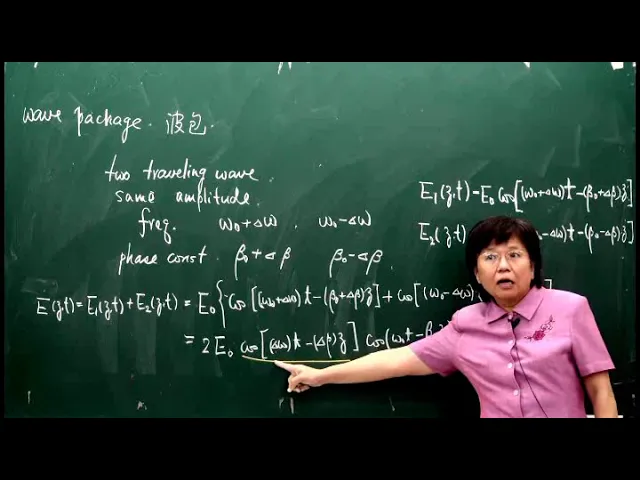 wave package. 波包.
two traveling wave.
same amplitude.
freq. ω₀+Δω . ω₀-Δω
phase const. β₀+Δβ β₀-Δβ
E₁(z,t)=E₀ cos[(ω₀+Δω)t-(β₀+Δβ)z]
E₂(z,t) -Δω)t-(β₀-Δβ)z]
E(z,t)=E₁(z,t)+E₂(z,t) = E₀{cos[(ω₀+Δω)t-(β₀+Δβ)z]+cos[(ω₀-Δω)
= 2E₀ cos[(Δω)t-(Δβ)z] cos(ω₀t-β